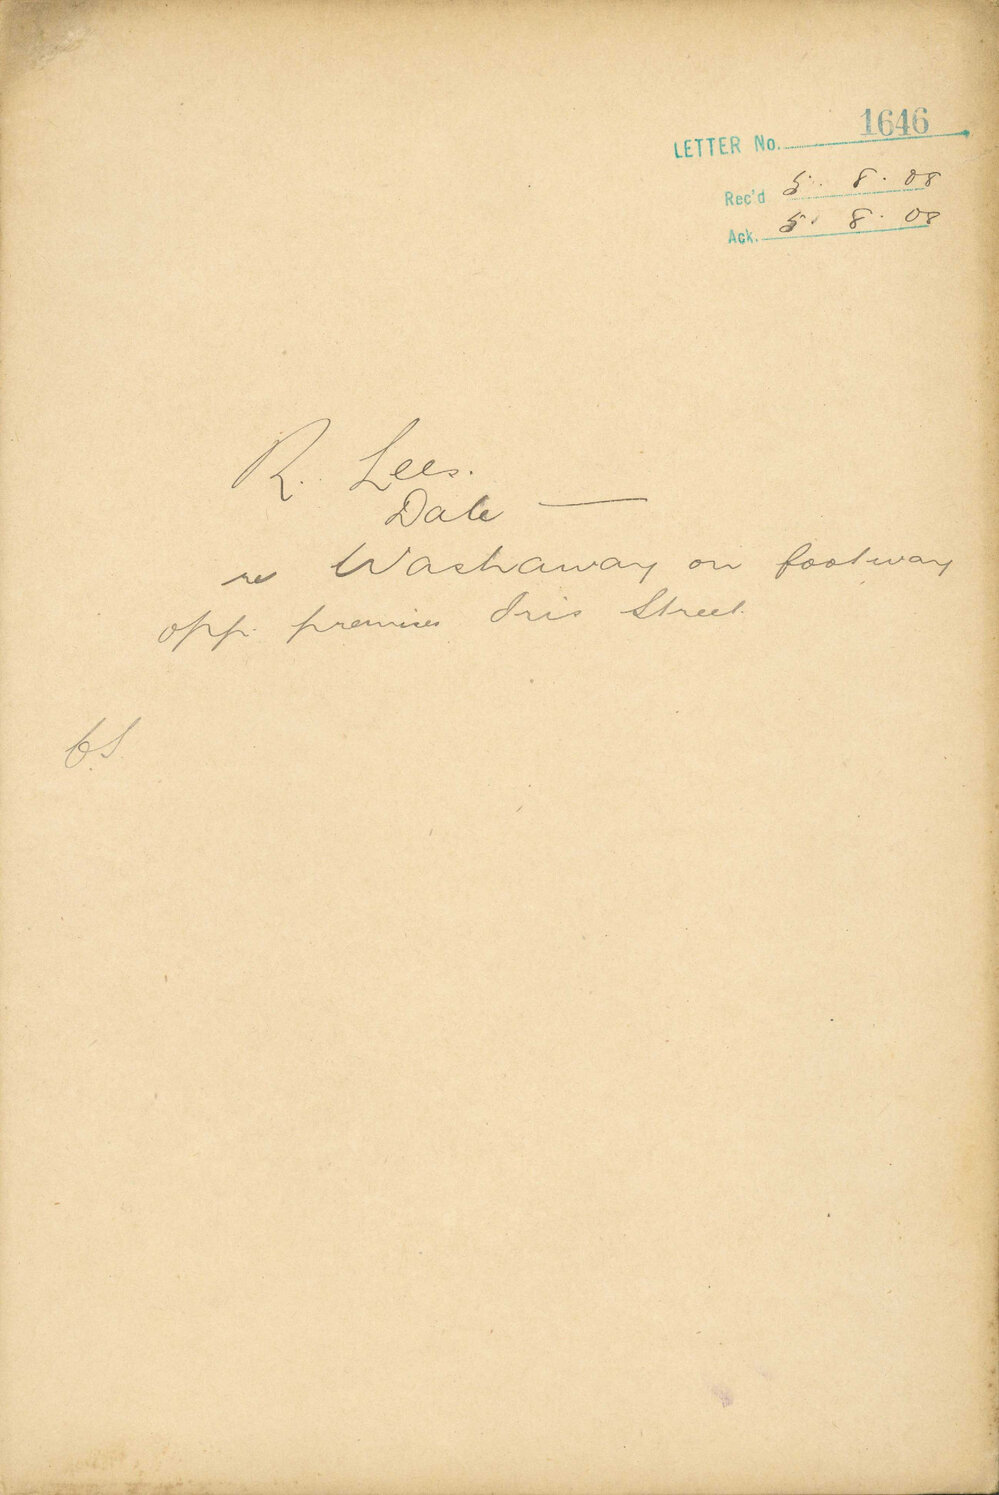 LETTER No. 1646
Rec'd 5. 8. 08
Ack. 5. 8. 08
R. Lees.
Dale —
re Washaway on footway
opp. premises Iris Street.